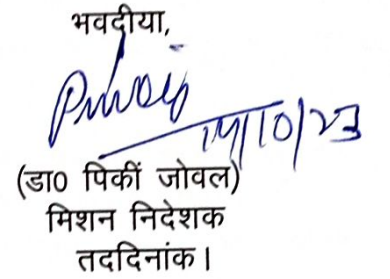 भवदीया,
14/10/23
(डा0 पिकीं जोवल)
मिशन निदेशक
तददिनांक।